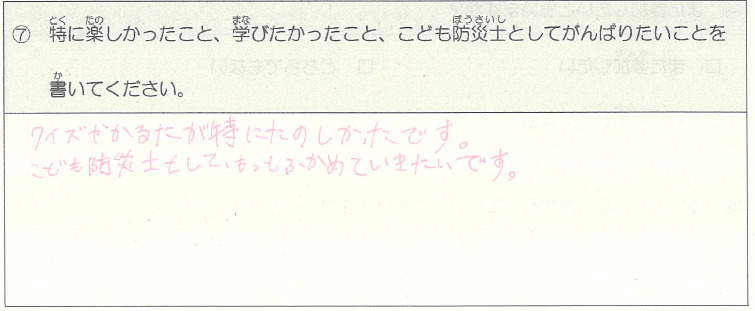 ⑦ 特に楽しかったこと、学びたかったこと、こども防災士としてがんばりたいことを
書いてください。
クイズやかるたが特にたのしかったです。
こども防災士として、もっとふかめていきたいです。